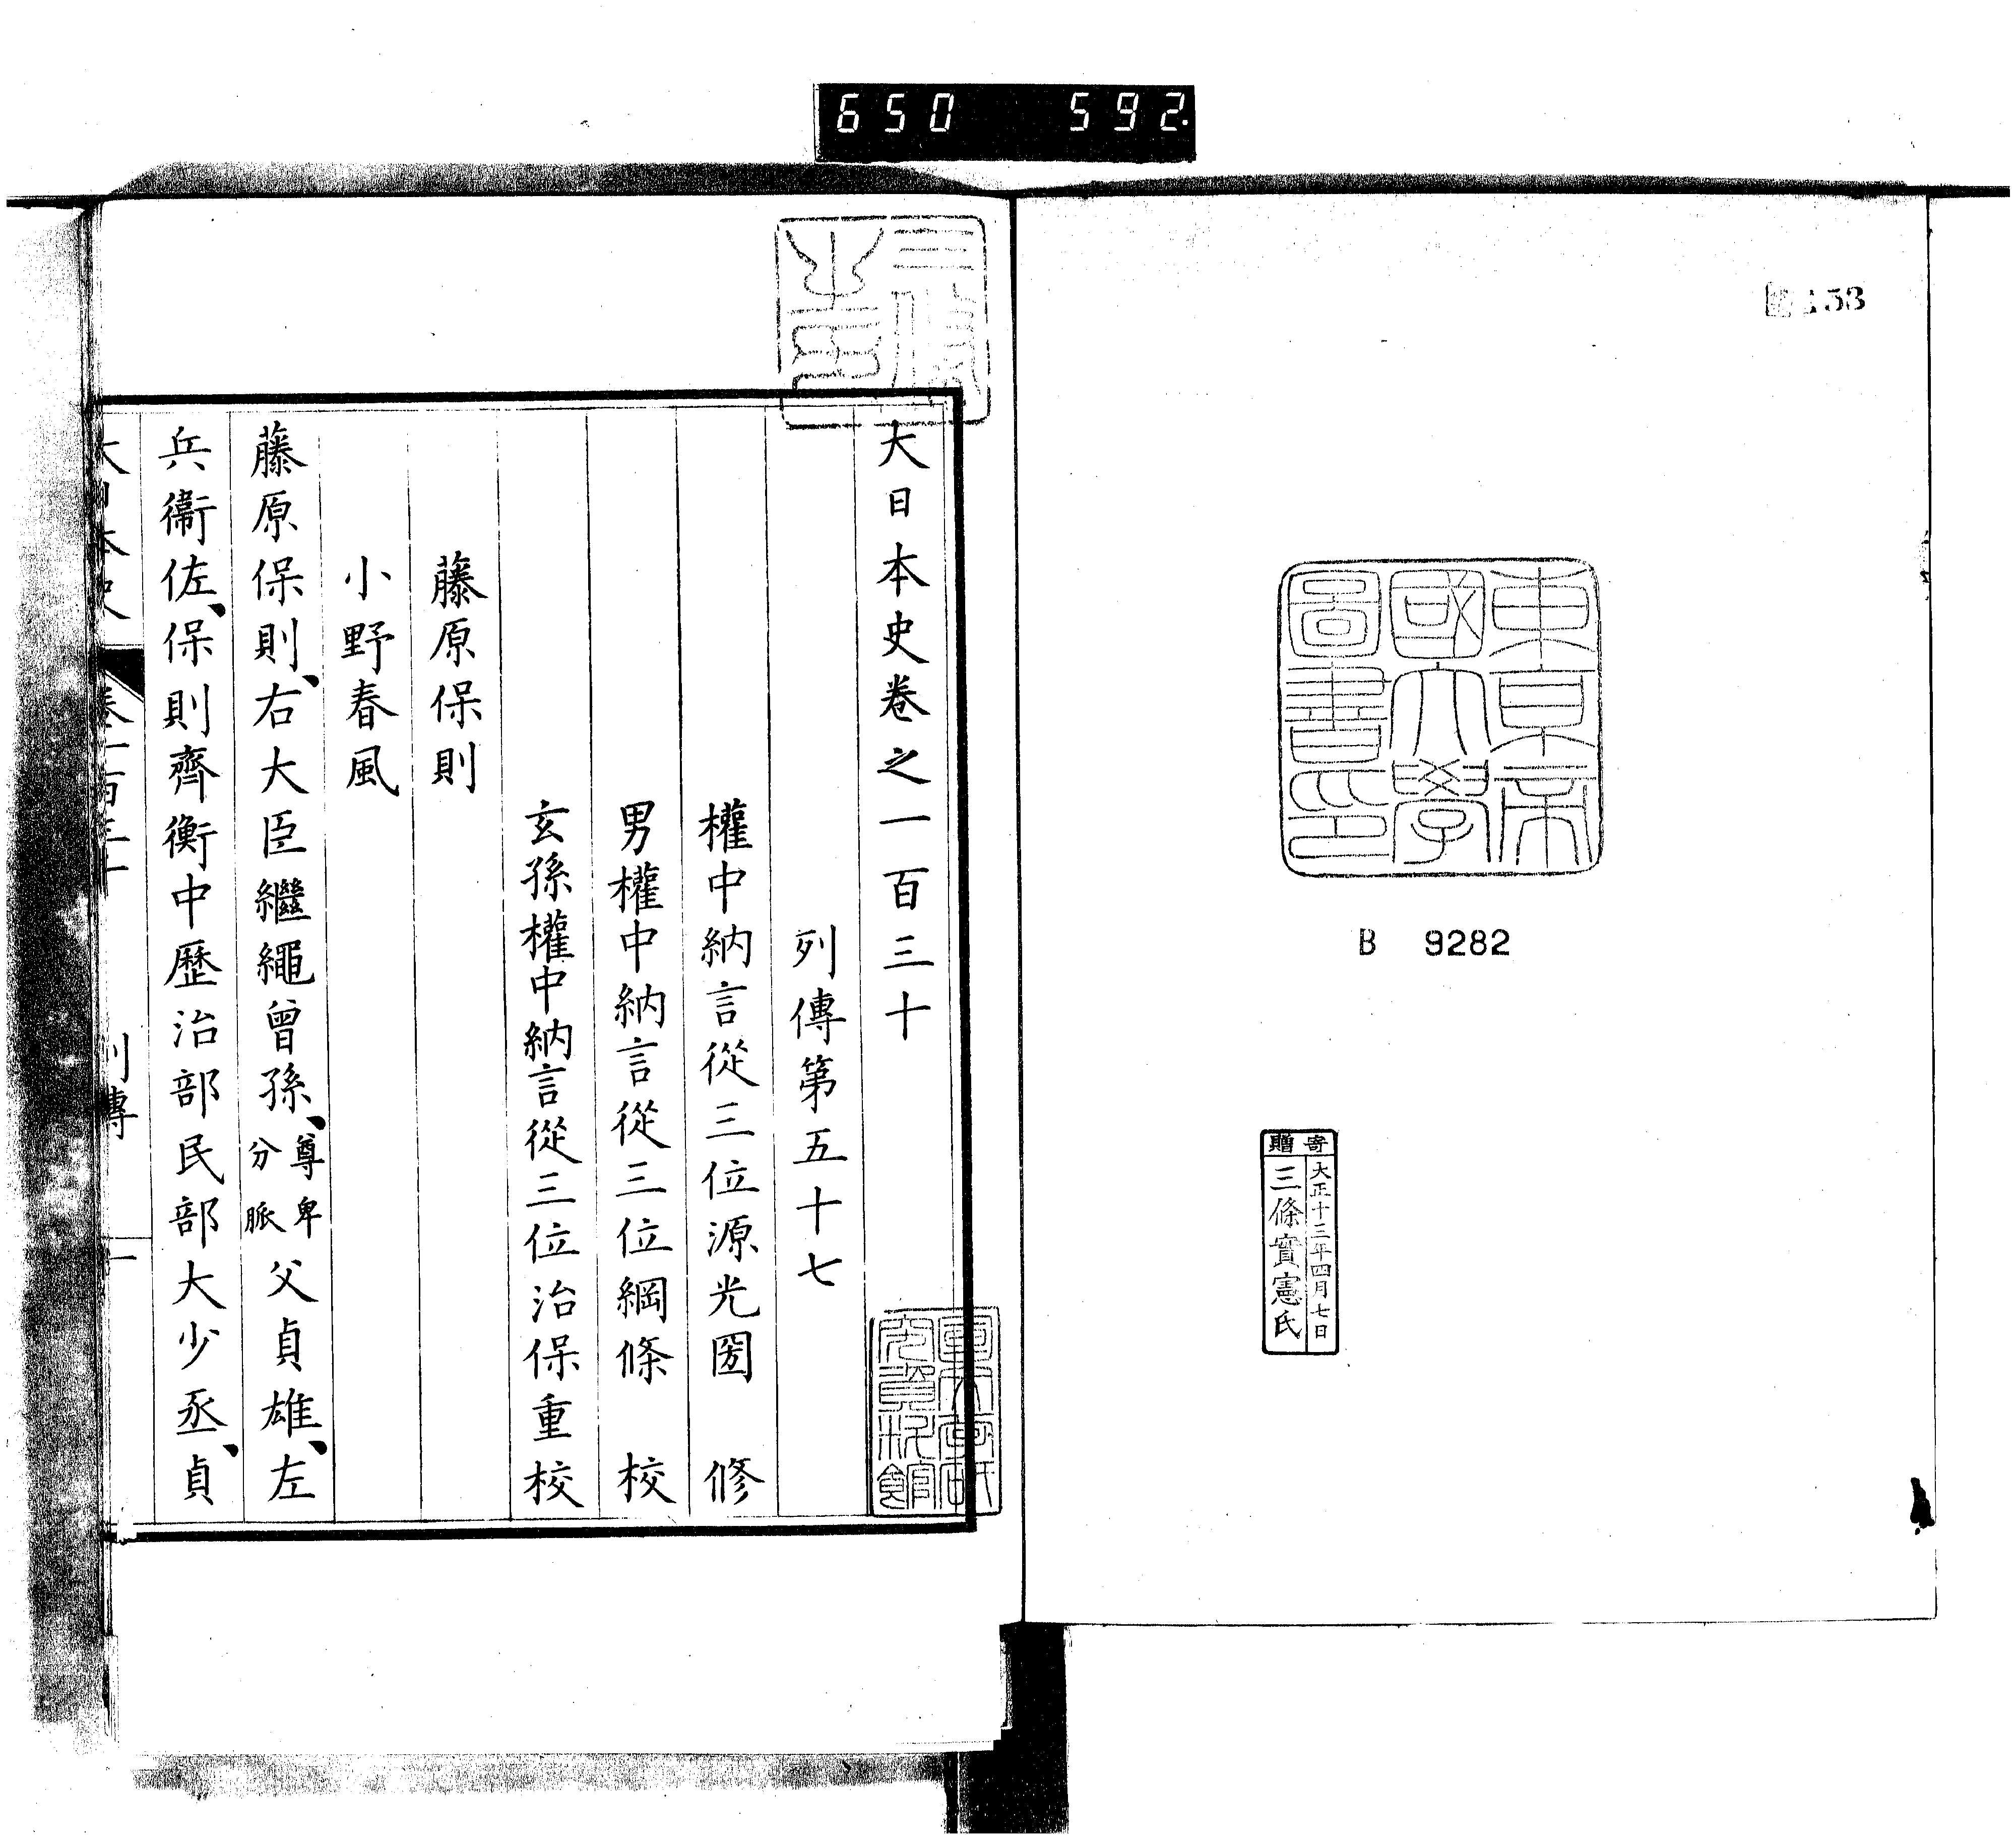 650 592.
53
東京帝
國大學
圖書印
B 9282
寄贈
大正十三年四月七日
三條實憲氏
大日本史卷之一百三十
列傳第五十七
權中納言從三位源光圀 修
男權中納言從三位綱條 校
玄孫權中納言從三位治保重校
藤原保則
小野春風
藤原保則、右大臣繼繩曾孫、尊卑分脈父貞雄、左
兵衞佐、保則齊衡中歷治部民部大少丞、貞
大日本史 卷一百三十 列傳 一